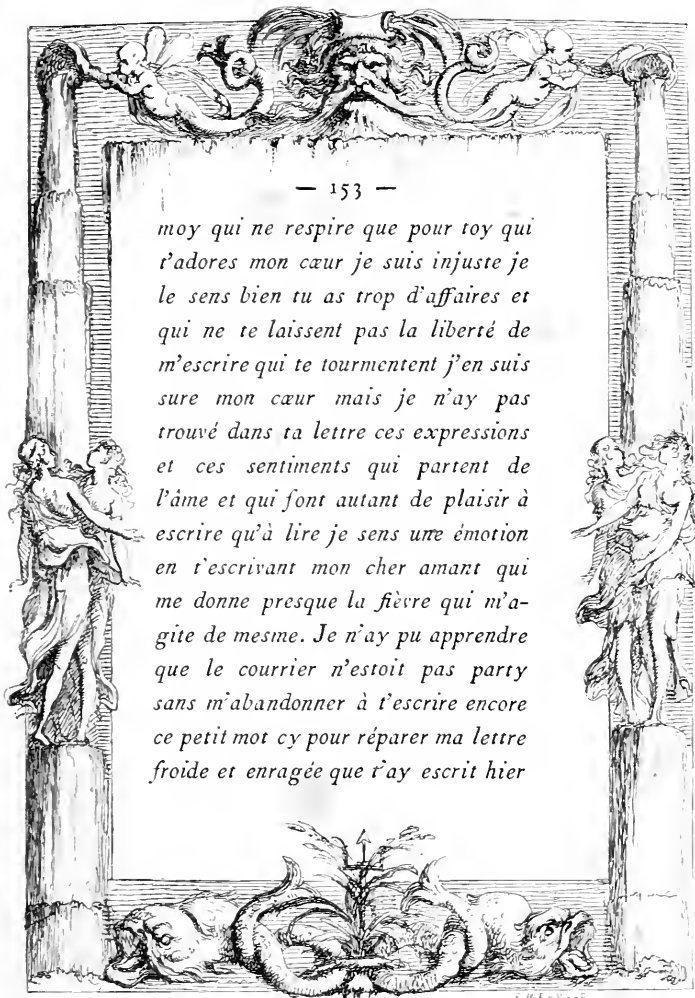 — 153 —
moy qui ne respire que pour toy qui
t'adores mon cœur je suis injuste je
le sens bien tu as trop d'affaires et
qui ne te laissent pas la liberté de
m'escrire qui te tourmentent j'en suis
sure mon cœur mais je n'ay pas
trouvé dans ta lettre ces expressions
et ces sentiments qui partent de
l'âme et qui font autant de plaisir à
escrire qu'à lire je sens une émotion
en t'escrivant mon cher amant qui
me donne presque la fièvre qui m'a-
gite de mesme. Je n'ay pu apprendre
que le courrier n'estoit pas party
sans m'abandonner à t'escrire encore
ce petit mot cy pour réparer ma lettre
froide et enragée que t'ay escrit hier